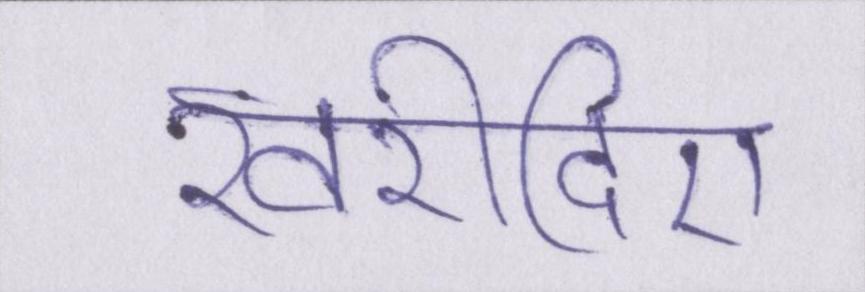 खरीदिए